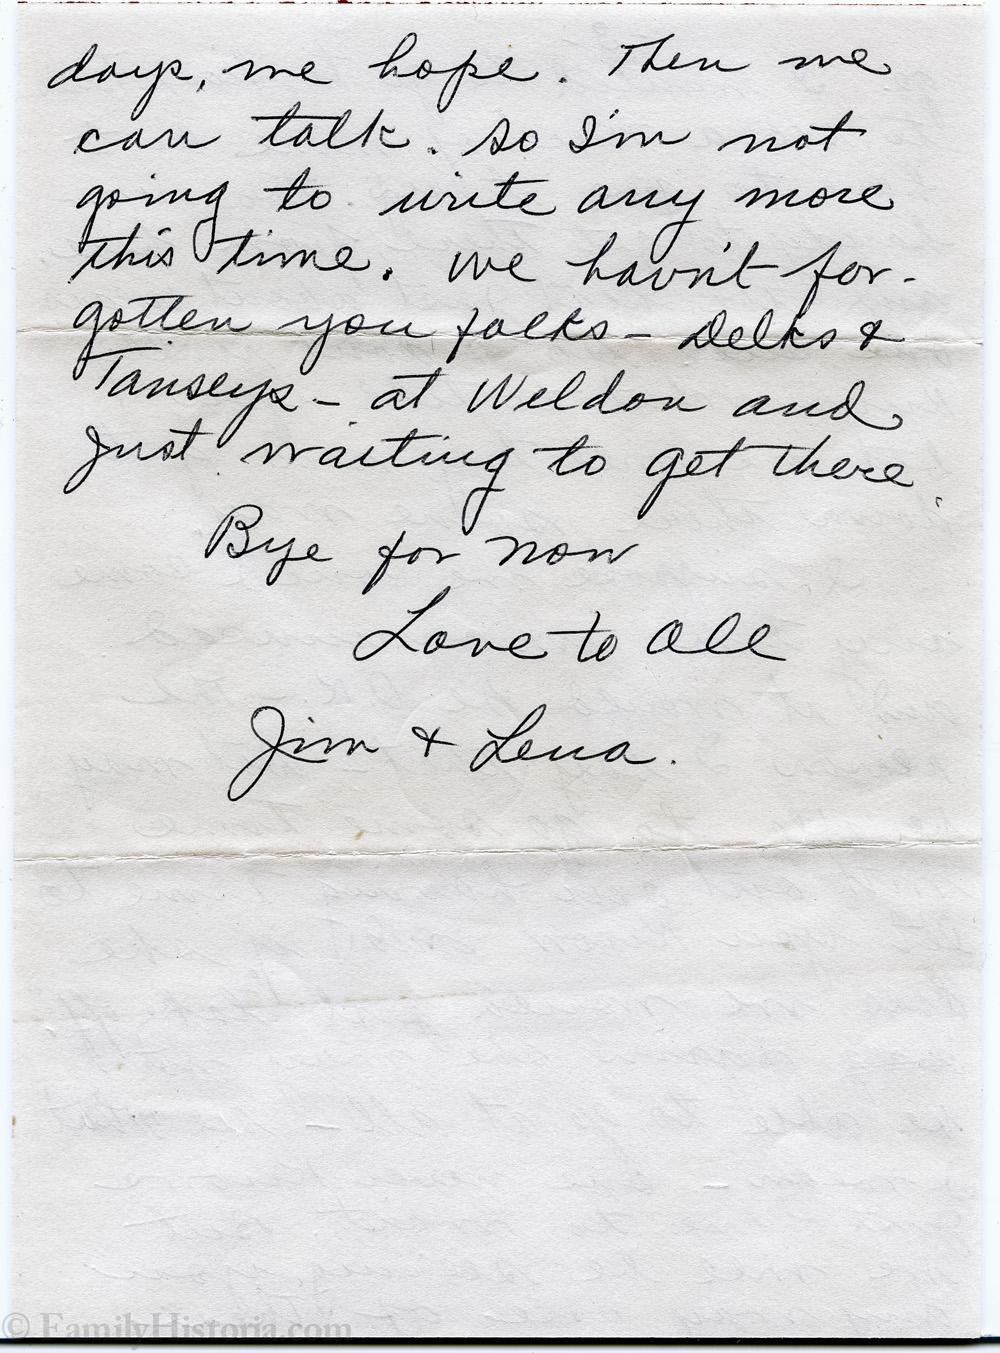 days, we hope. Then we
can talk. So I'm not
going to write any more
this time. We havn't for-
gotten you folks - Delks &
Tanseys - at Weldon and
just waiting to get there.
Bye for now
Love to all
Jim & Lena.
© FamilyHistoria.com